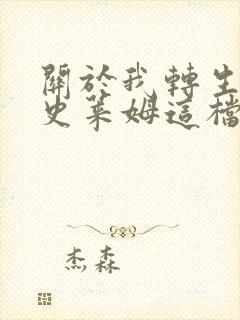 關於我轉生
史萊姆這檔
杰森